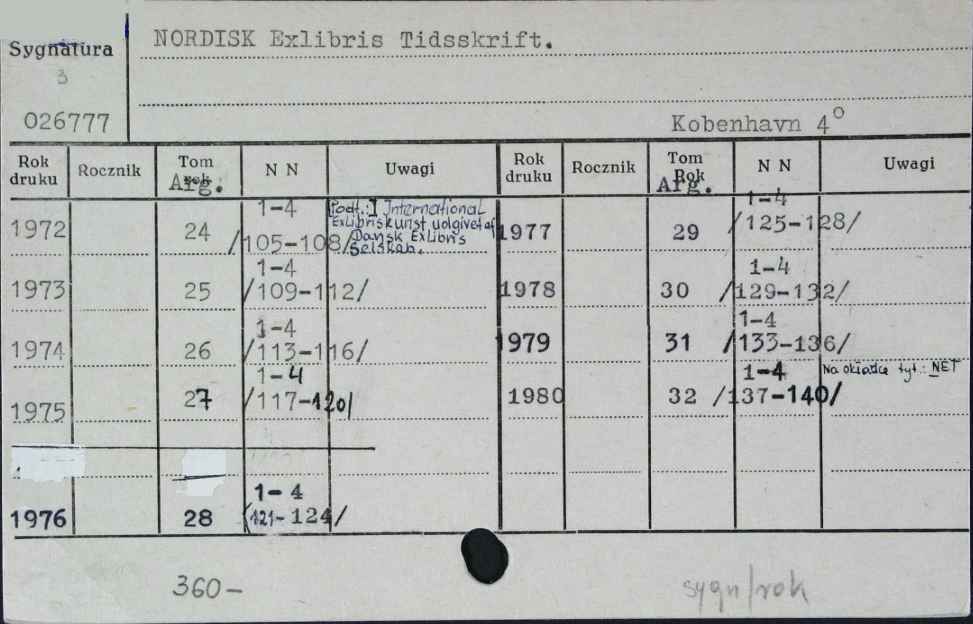 Sygnatura
3
026777
NORDISK Exlibris Tidsskrift.
Kobenhavn 4°
Rok druku Rocznik Tom rok Arg. N N Uwagi Rok druku Rocznik Tom Rok Arg. N N Uwagi
1972 24 1-4 /105-108/
Podt.: I International
Exlibriskunst udgivet af
Dansk Exlibris
Selskab.
1977 29 1-4 /125-128/
1973 25 1-4 /109-112/ 1978 30 1-4 /129-132/
1974 26 1-4 /113-116/ 1979 31 1-4 /133-136/
1975 27 1-4 /117-120/ 1980 32 1-4 /137-140/ Na okładce tyt.: NET
1976 28 1-4 /121-124/
360-
sygn/rok